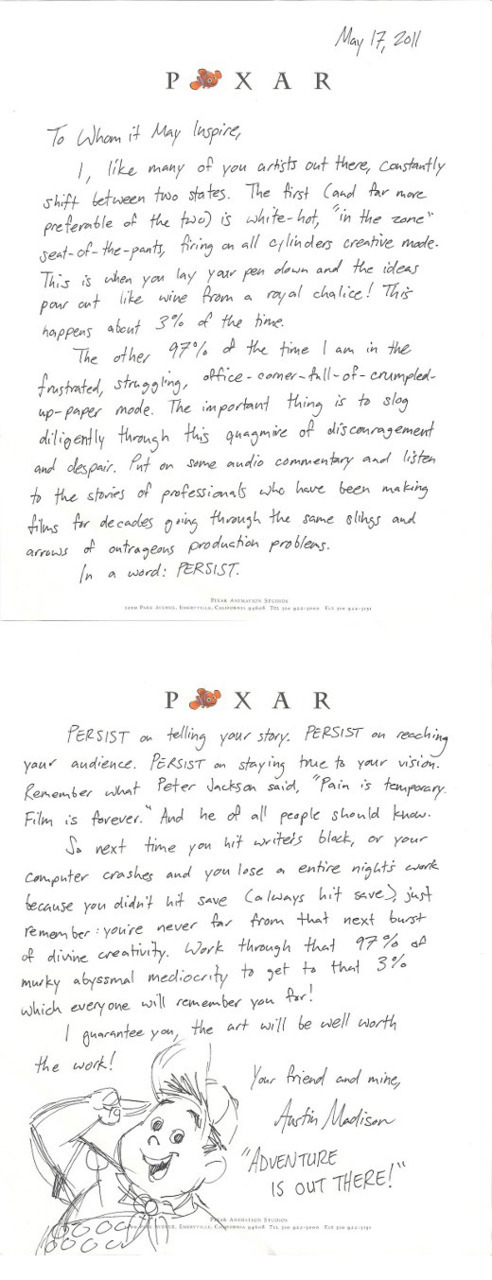 May 17, 2011
P XAR
To Whom it May Inspire,
I, like many of you artists out there, constantly
shift between two states. The first (and far more
preferable of the two) is white-hot, "in the zone"
seat-of-the-pants, firing on all cylinders creative mode.
This is when you lay your pen down and the ideas
pour out like wine from a royal chalice! This
happens about 3% of the time.
The other 97% of the time I am in the
frustrated, struggling, office-corner-full-of-crumpled-
up-paper mode. The important thing is to slog
diligently through this quagmire of discouragement
and despair. Put on some audio commentary and listen
to the stories of professionals who have been making
films for decades going through the same slings and
arrows of outrageous production problems.
In a word: PERSIST.
PIXAR ANIMATION STUDIOS
1200 PARK AVENUE, EMERYVILLE, CALIFORNIA 94608 TEL 510 922-3000 FAX 510 922-3151
P XAR
PERSIST on telling your story. PERSIST on reaching
your audience. PERSIST on staying true to your vision.
Remember what Peter Jackson said, "Pain is temporary.
Film is forever." And he of all people should know.
So next time you hit writer's block, or your
computer crashes and you lose a entire night's work
because you didn't hit save (always hit save) just
remember: you're never far from that next burst
of divine creativity. Work through that 97% of
murky abyssmal mediocrity to get to that 3%
which everyone will remember you for!
I guarantee you, the art will be well worth
the work!
Your friend and mine,
Austin Madison
"ADVENTURE
IS OUT THERE!"
PIXAR ANIMATION STUDIOS
1200 PARK AVENUE, EMERYVILLE, CALIFORNIA 94608 TEL 510 922-3000 FAX 510 922-3151